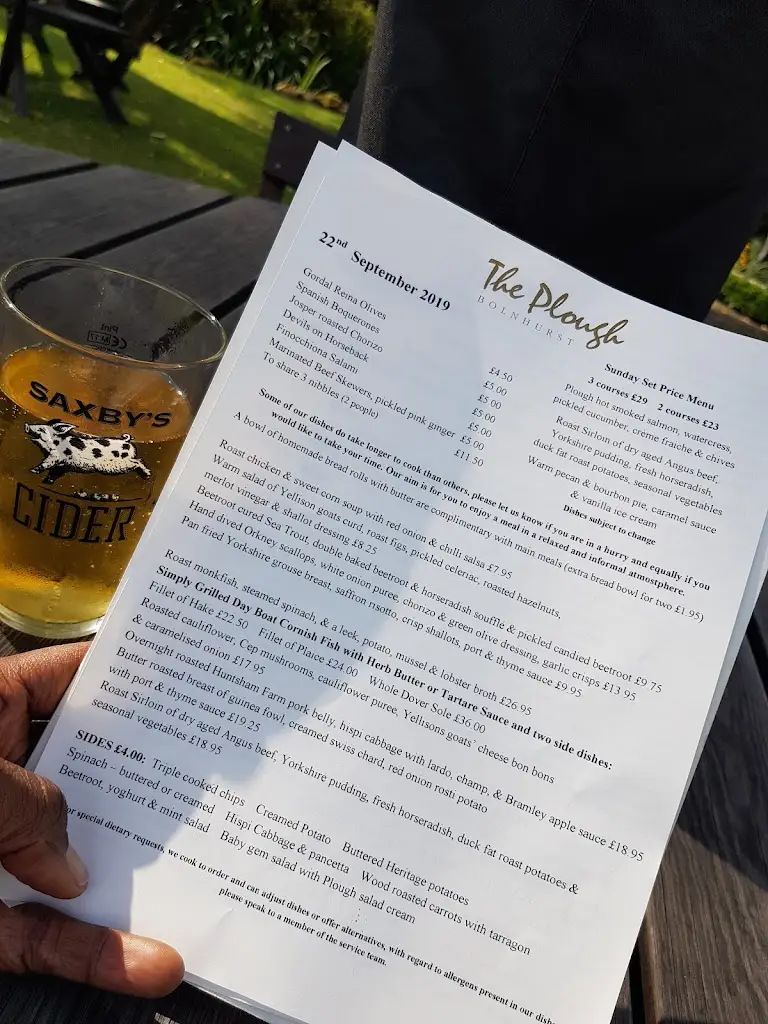 22nd September 2019
The Plough
BOLNHURST
Gordal Reina Olives £4.50
Spanish Boquerones £5.00
Josper roasted Chorizo £5.00
Devils on Horseback £5.00
Finocchiona Salami £5.00
Marinated Beef Skewers, pickled pink ginger £5.00
To share 3 nibbles (2 people) £11.50
Sunday Set Price Menu
3 courses £29 2 courses £23
Plough hot smoked salmon, watercress,
pickled cucumber, creme fraiche & chives
Roast Sirloin of dry aged Angus beef,
Yorkshire pudding, fresh horseradish,
duck fat roast potatoes, seasonal vegetables
Warm pecan & bourbon pie, caramel sauce
& vanilla ice cream
Dishes subject to change
Some of our dishes do take longer to cook than others, please let us know if you are in a hurry and equally if you
would like to take your time. Our aim is for you to enjoy a meal in a relaxed and informal atmosphere.
A bowl of homemade bread rolls with butter are complimentary with main meals (extra bread bowl for two £1.95)
Roast chicken & sweet corn soup with red onion & chilli salsa £7.95
Warm salad of Yellison goats curd, roast figs, pickled celeriac, roasted hazelnuts,
merlot vinegar & shallot dressing £8.25
Beetroot cured Sea Trout, double baked beetroot & horseradish souffle & pickled candied beetroot £9.75
Hand dived Orkney scallops, white onion puree, chorizo & green olive dressing, garlic crisps £13.95
Pan fried Yorkshire grouse breast, saffron risotto, crisp shallots, port & thyme sauce £9.95
Roast monkfish, steamed spinach, & a leek, potato, mussel & lobster broth £26.95
Simply Grilled Day Boat Cornish Fish with Herb Butter or Tartare Sauce and two side dishes:
Fillet of Hake £22.50 Fillet of Plaice £24.00 Whole Dover Sole £36.00
Roasted cauliflower, Cep mushrooms, cauliflower puree, Yellisons goats' cheese bon bons
& caramelised onion £17.95
Overnight roasted Huntsham Farm pork belly, hispi cabbage with lardo, champ, & Bramley apple sauce £18.95
Butter roasted breast of guinea fowl, creamed swiss chard, red onion rosti potato
with port & thyme sauce £19.25
Roast Sirloin of dry aged Angus beef, Yorkshire pudding, fresh horseradish, duck fat roast potatoes &
seasonal vegetables £18.95
SIDES £4.00: Triple cooked chips Creamed Potato Buttered Heritage potatoes
Spinach – buttered or creamed Hispi Cabbage & pancetta Wood roasted carrots with tarragon
Beetroot, yoghurt & mint salad Baby gem salad with Plough salad cream
or special dietary requests, we cook to order and can adjust dishes or offer alternatives, with regard to allergens present in our dish
please speak to a member of the service team.
SAXBY'S
CIDER
Pint
CE